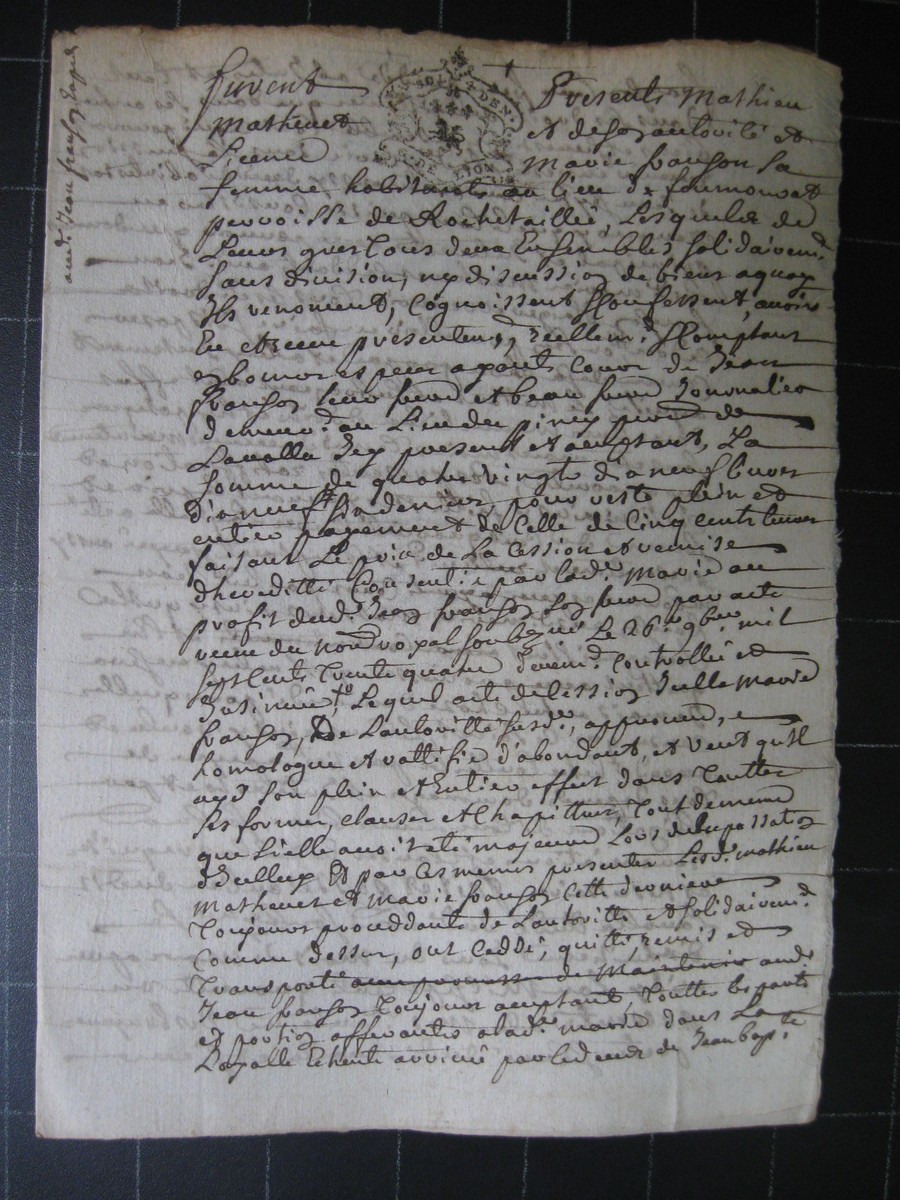 aud. Jean franson
furent Presents Mathieu
mathevet et de son autorité et
licence marie franson sa
femme habitants au lieu de
parroisse de Rochetaillée, Lesquels de
Leurs gres tous deux Ensembles solidairemt.
sans division, ny discussion de biens a quoy
Ils renoncent, Cognoissent & Confessent, avoir
Eu et receu presentemt, reellemt. & Comptant
es bonnes especes ayants Cours de Jean
franson leur frere et beau frere Journalier
demeurt. au Lieu du piney parr. de
Lavalla Icy present et aceptant, La
somme de quatre vingts dix neuf livres
dix neuf s. six deniers, pour reste plein et
entier payement de Celle de Cinq cents livres
faisant Le prix de La Cession et remise
dheredité Consentie par lad. marie au
profit dud. Jean franson son frere par acte
receu du nore. royal soubzné. Le 26e. 9bre. mil
sept Cents trente quatre devemt. Controllé et
Insinué, Lequel acte de Cession Icelle marie
franson, de Lautorité susde., approuve,
homologue et rattifie d'abondant, et veut qu'Il
aye son plein et Entier effect dans touttes
ses formes, clauses et Chapittres, tout de meme
que si elle avoit eté majeure Lors de la passation
d'Icelluy Et par Ces memes presentes Lesd. mathieu
Mathevet et Marie franson Cette derniere
toujours proceddante de Lautorité et solidairemt.
Comme dessus, ont Ceddé, quitté, remis et
transporté avec promesse de Maintenir aud.
Jean franson toujours aceptant, touttes les parts
et portions afferantes a lad. marie dans La
Layalle Echeute arrivée par le deces de Jean bapte.